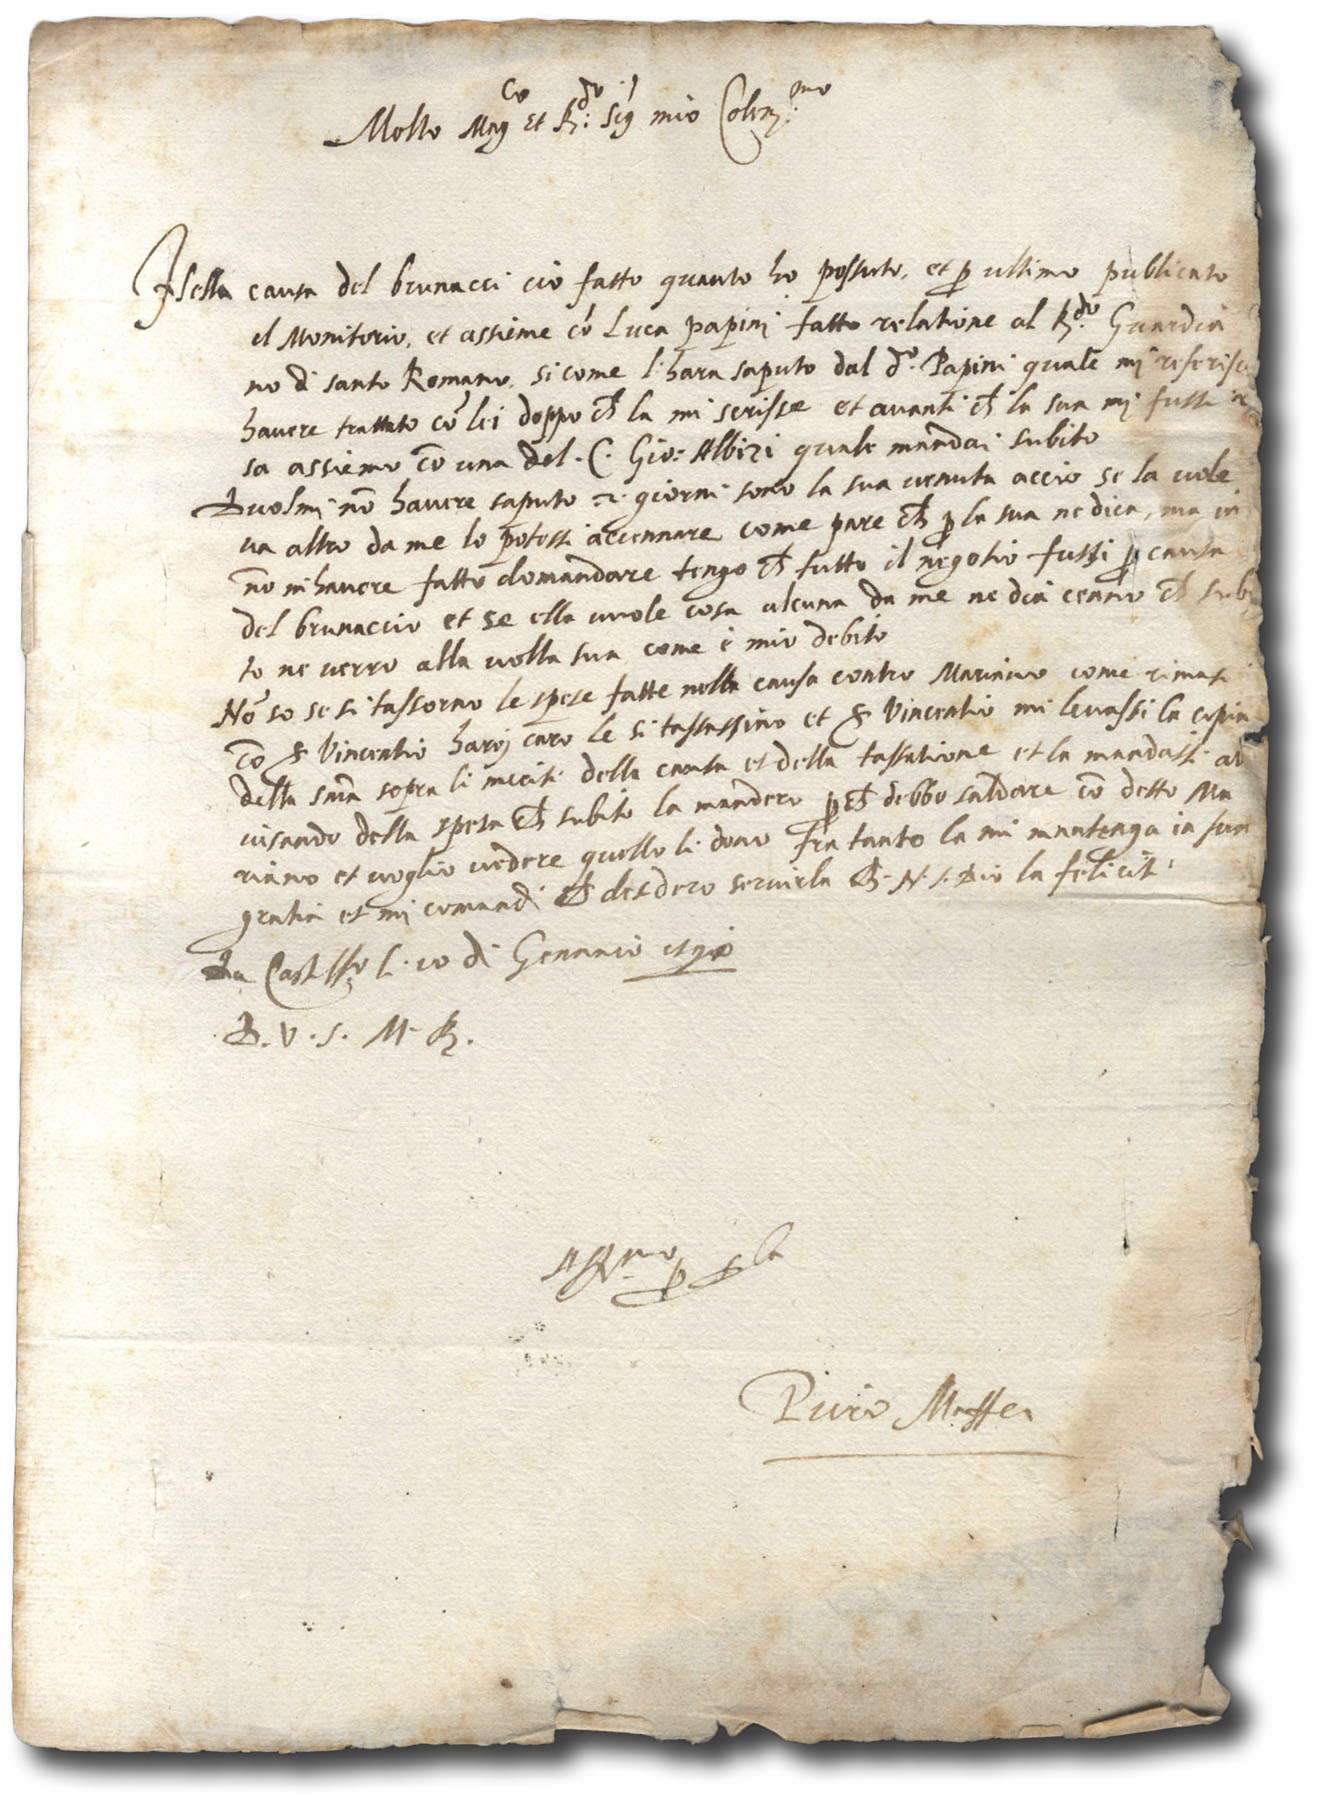 Molto Mag.co et R.do Sig.r mio Coler.mo
Nella causa del brunacci ciò fatto quanto ho possuto, et p ultimo publicato
il Monitorio, et assieme cō Luca papini fatto relatione al R.do Guardia
no di santo Romano, si come l'hara saputo dal d.o Papini quale mi referisce
havere trattato cō lei doppo ch la mi scrisse et avanti ch la sua mi fussi
sa assieme cō una del C. Gio: Albizi quale mandai subito
Duolmi nō havere saputo 2 giorni sono la sua venuta accio se la vole
va altro da me lo potessi accennare come pare ch p la sua ne dica, ma in
nō mhavere fatto domandare tengo ch tutto il negotio fussi p causa
del brunaccio et se ella vuole cosa alcuna da me ne dia cenno ch subi
to ne verro alla volta sua come è mio debito
Nō so se si tassorno le spese fatte nella causa contro Mariano come rimasi
cō Vincentio harei caro le si tassassino et Vincentio mi levassi la copia
della snīa sopra li meriti della causa et della tassatione et la mandassi av
visando della spesa ch subito la mandero pch debbo saldare cō detto Ma
riano et voglio vedere quello li devo fra tanto la mi mantenga in sua
gratia et mi comandi ch desidero servirla ch N. S. Dio la feliciti
Da li 10 di Gennaio
D. V. S. M. R.
Aff.mo p s.la
Piero Maffei